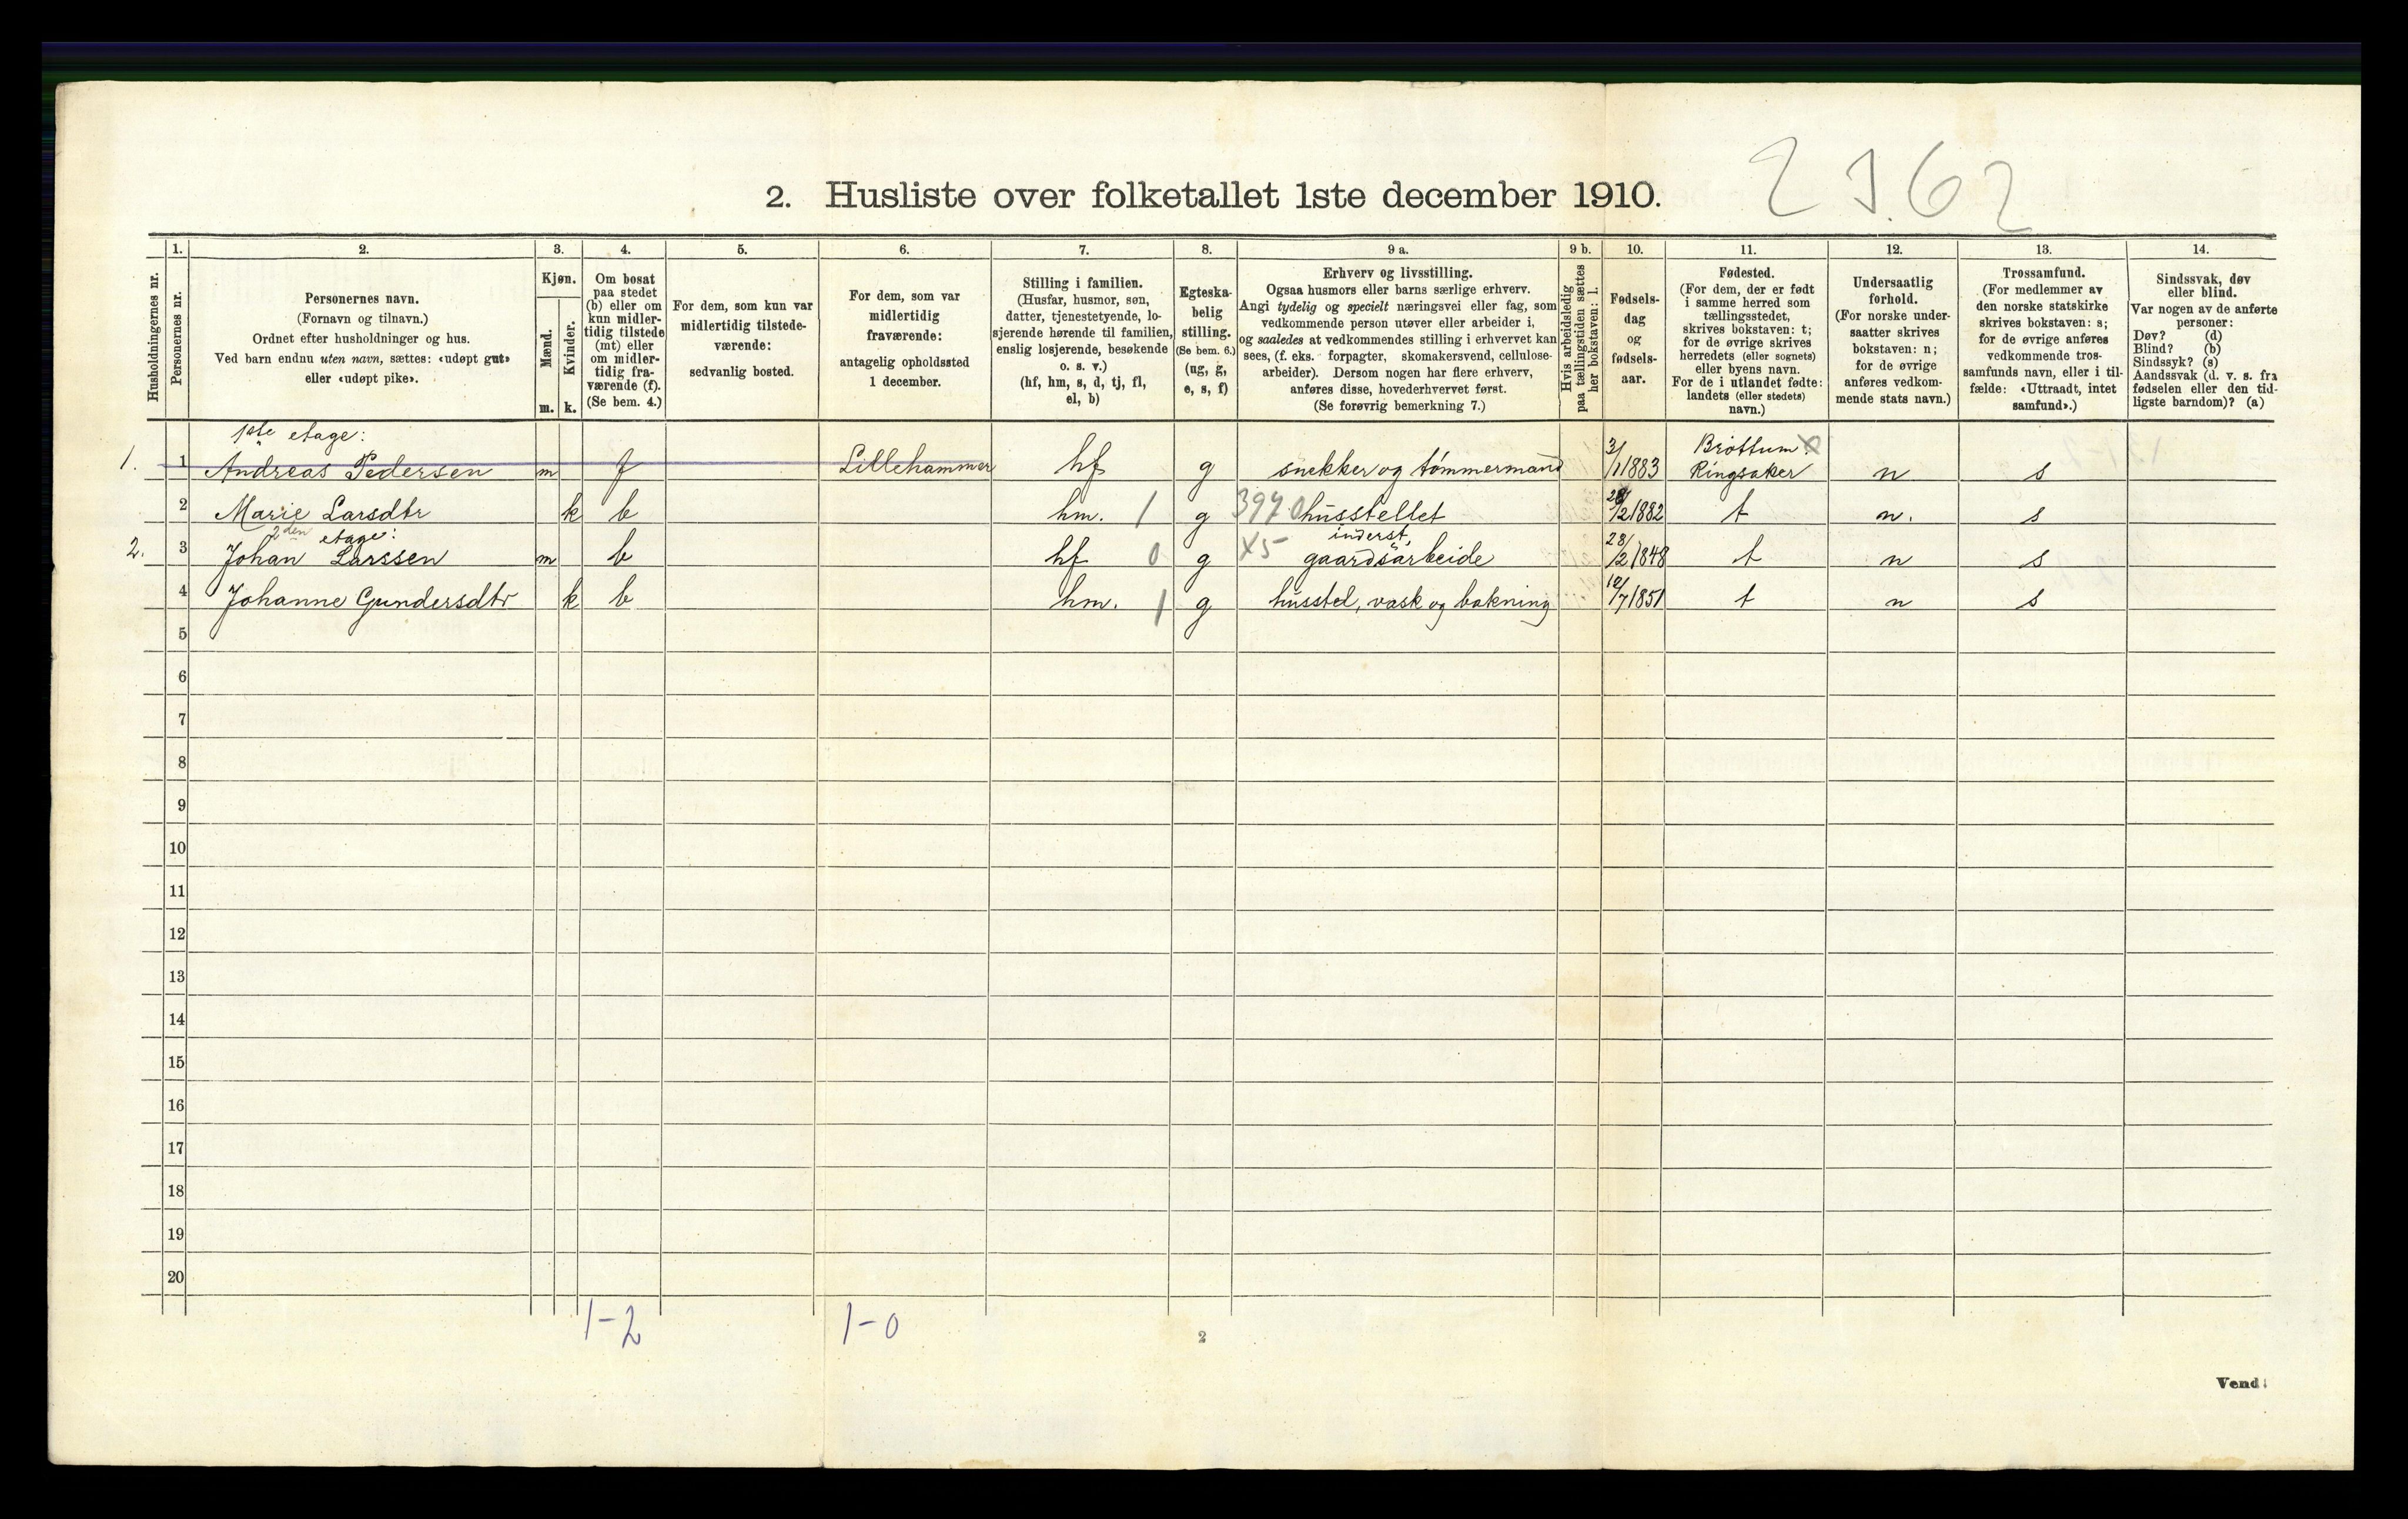 2362
2. Husliste over folketallet 1ste december 1910.
1. 2. 3. 4. 5. 6. 7. 8. 9 a. 9 b. 10. 11. 12. 13. 14.
Husholdningernes nr.
Personernes nr.
Personernes navn.
(Fornavn og tilnavn.)
Ordnet efter husholdninger og hus.
Ved barn endnu uten navn, sættes: «udøpt gut»
eller «udøpt pike».
Kjøn.
Mænd.
Kvinder.
m. k.
Om bosat
paa stedet
(b) eller om
kun midler-
tidig tilstede
(mt) eller
om midler-
tidig fra-
værende (f).
(Se bem. 4.)
For dem, som kun var
midlertidig tilstede-
værende:
sedvanlig bosted.
For dem, som var
midlertidig
fraværende:
antagelig opholdssted
1 december.
Stilling i familien.
(Husfar, husmor, søn,
datter, tjenestetyende, lo-
sjerende hørende til familien,
enslig losjerende, besøkende
o. s. v.)
(hf, hm, s, d, tj, fl,
el, b)
Egteska-
belig
stilling.
(Se bem. 6.)
(ug, g,
e, s, f)
Erhverv og livsstilling.
Ogsaa husmors eller barns særlige erhverv.
Angi tydelig og specielt næringsvei eller fag, som
vedkommende person utøver eller arbeider i,
og saaledes at vedkommendes stilling i erhvervet kan
sees, (f. eks. forpagter, skomakersvend, cellulose-
arbeider). Dersom nogen har flere erhverv,
anføres disse, hovederhvervet først.
(Se forøvrig bemerkning 7.)
Hvis arbeidsledig
paa tællingstiden sættes
her bokstaven: l.
Fødsels-
dag
og
fødsels-
aar.
Fødested.
(For dem, der er født
i samme herred som
tællingsstedet,
skrives bokstaven: t;
for de øvrige skrives
herredets (eller sognets)
eller byens navn.
For de i utlandet fødte:
landets (eller stedets)
navn.)
Undersaatlig
forhold.
(For norske under-
saatter skrives
bokstaven: n;
for de øvrige
anføres vedkom-
mende stats navn.)
Trossamfund.
(For medlemmer av
den norske statskirke
skrives bokstaven: s;
for de øvrige anføres
vedkommende tros-
samfunds navn, eller i til-
fælde: «Uttraadt, intet
samfund».)
Sindssvak, døv
eller blind.
Var nogen av de anførte
personer:
Døv? (d)
Blind? (b)
Sindssyk? (s)
Aandssvak (d. v. s. fra
fødselen eller den tid-
ligste barndom)? (a)
1ste etage:
Brøttum
1. 1 Andreas Pedersen m f Lillehammer hf g snekker og tømmermand 3/1 1883 Ringsaker n s
2 Marie Larsdtr k b hm. 1 g 3970 husstellet 28/2 1882 t n. s
2den etage: inderst,
2. 3 Johan Larssen m b hf 0 g X5 gaardsarbeide 28/2 1848 t n s
4 Johanne Gundersdtr k b hm. 1 g husstel, vask og bakning 10/7 1851 t n s
5
6
7
8
9
10
11
12
13
14
15
16
17
18
19
20
1-2 1-0
2
Vend!